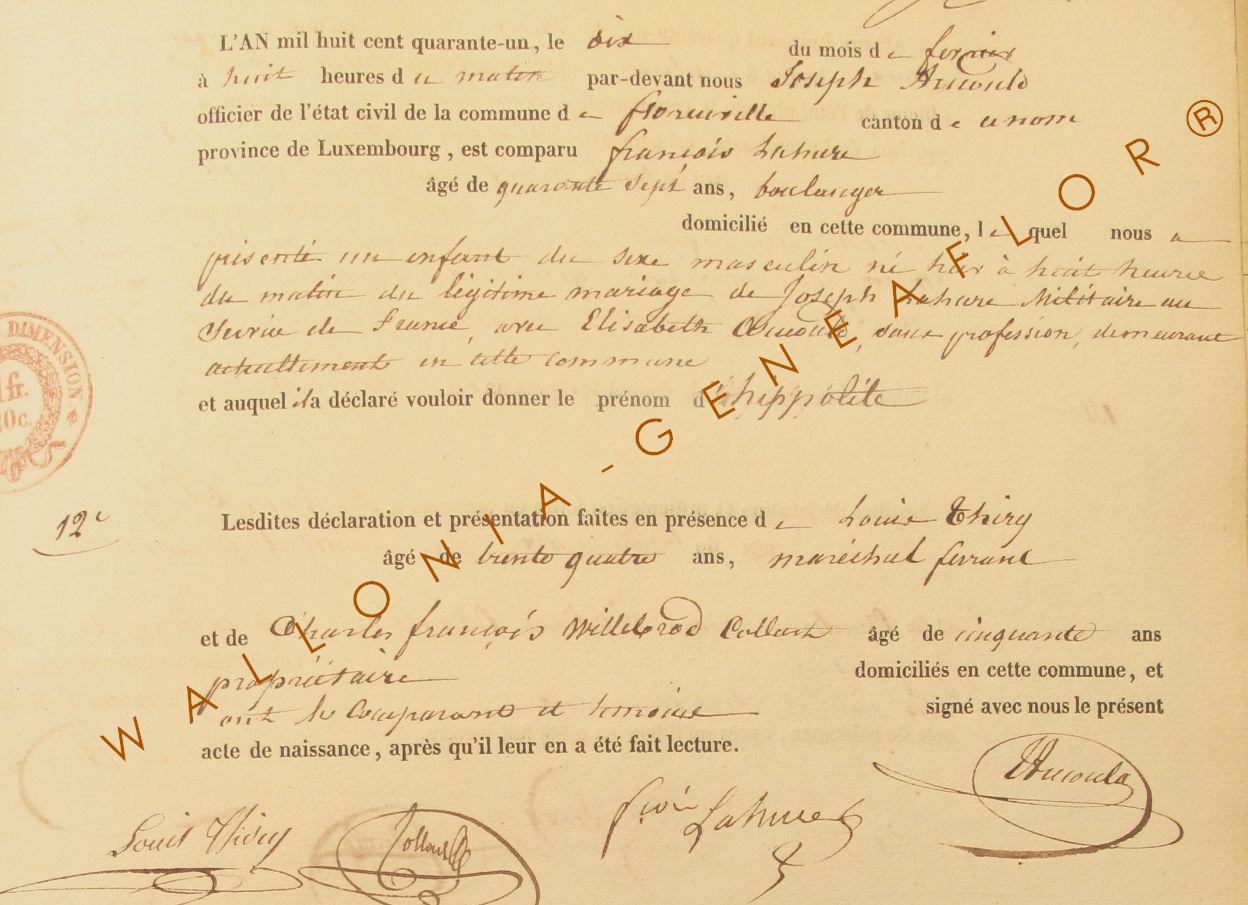 L'AN mil huit cent quarante-un, le dix du mois de fevrier
à huit heures du matin par-devant nous Joseph Arnould
officier de l'état civil de la commune de florenville canton de ce nom
province de Luxembourg, est comparu françois Lahure
âgé de quarante sept ans, boulanger
domicilié en cette commune, lequel nous a
présenté un enfant du sexe masculin né hier à huit heures
du matin du légitime mariage de Joseph Lahure Militaire au
Service de France, avec Elisabeth Arnould, sans profession, demeurant
actuellement en cette commune
et auquel il a déclaré vouloir donner le prénom d'hippolite
12e
Lesdites déclaration et présentation faites en présence de Louis Thiry
âgé de trente quatre ans, maréchal ferrant
et de Charles françois Willebrod Collard âgé de cinquante ans
propriétaire domiciliés en cette commune, et
ont le Comparant et temoins signé avec nous le présent
acte de naissance, après qu'il leur en a été fait lecture.
Louis Thiry Collard Lahure Arnould
DIMENSION
WALLONIA-GENEAFLOR®